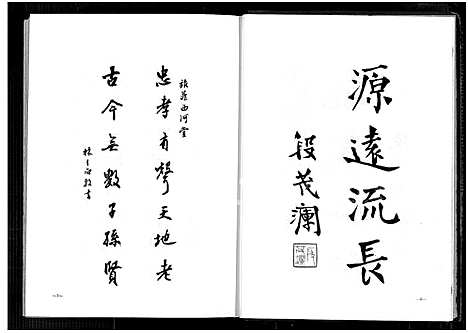 源遠流長
段茂瀾
旅菲西河堂
忠孝有聲天地老
古今無數子孫賢